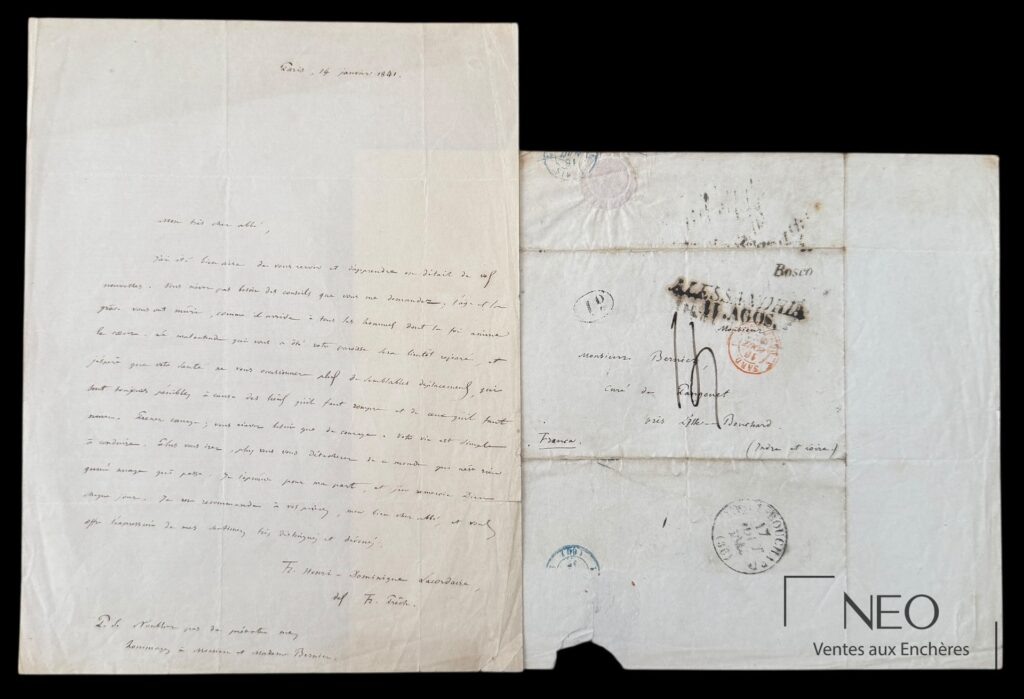 Paris, 14 janvier 1841.
Mon très cher abbé,
J'ai été bien aise de vous revoir et d'apprendre en détail de vos
nouvelles. Vous n'avez pas besoin des conseils que vous me demandez, l'âge et la
grâce vous ont mûri, comme il arrive à tous les hommes dont la foi anime
le cœur. malentendu qui vous a été votre paroisse sera bientôt réparé, et
j'espère que votre santé ne vous occasionnera plus de semblables déplacements, qui
sont toujours pénibles à cause des liens qu'il faut rompre et de ceux qu'il faut
nouer. Prenez courage; vous n'avez besoin que de courage. Votre vie est simple
à conduire. Plus vous irez, plus vous vous détacherez de ce monde qui n'est rien
qu'un nuage qui passe. Je l'éprouve pour ma part, et j'en remercie Dieu
chaque jour. Je me recommande à vos prières, mon bien cher abbé, et vous
offre l'expression de mes sentiments très distingués et dévoués.
Fr. Henri-Dominique Lacordaire,
des Fr. Prêch.
P. S. N'oubliez pas de présenter mes
hommages à Monsieur et Madame Bernier.
Bosco
ALESSANDRIA
11. AGOS.
Monsieur
Monsieur Bernier,
curé de
près l'Ile-Bouchard
France
(Indre et Loire)
BOUCHARD
17
(36)
NEO
Ventes aux Enchères